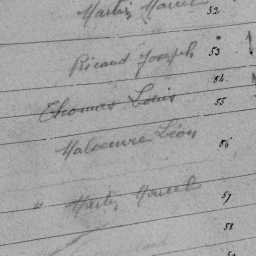 Martin Marcel 52
Ricaud Joseph 53
54
Thomas Louis 55
Maloeuvre Léon 56
" Martin Marcel 57
58